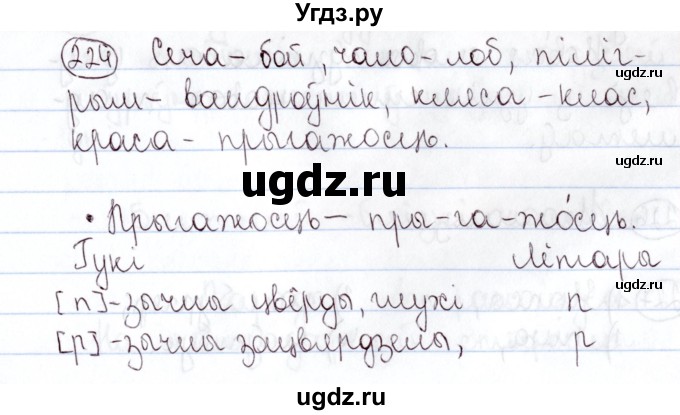 Угдз.ру
224 Сеча - бой, чало - лоб, піліг-
рым - вандроўнік, кляса - клас,
краса - прыгажосць.
• Прыгажосць - пры-га-жо́сць.
Гукі Літары
[п] - зычны цвёрды, глухі п
[р] - зычны зацвярдзелы, р
ugdz.ru
ugdz.ru
ugdz.ru
ugdz.ru
ugdz.ru
ugdz.ru
ugdz.ru
ugdz.ru